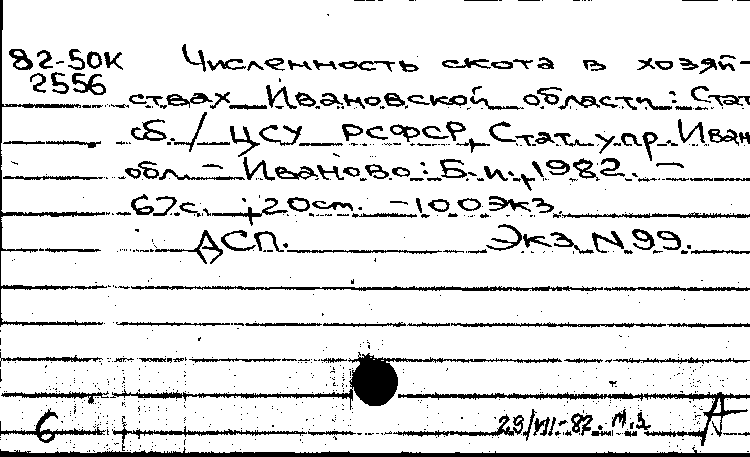 82-50К Численность скота в хозяй-
2556
ствах Ивановской области: Стат
сб. / ЦСУ РСФСР, Стат. упр. Иван
обл. – Иваново: Б.и., 1982. –
67с. ; 20см. – 100 экз.
ДСП. Экз. N 99.
6 29/VII-82. А